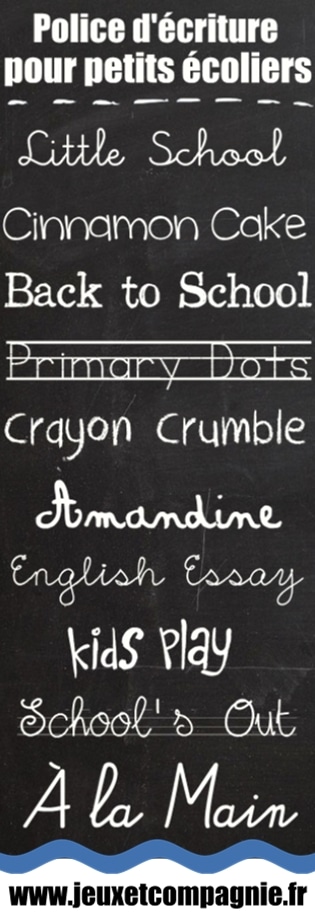 Police d'écriture
pour petits écoliers
Little School
Cinnamon Cake
Back to School
Primary Dots
Crayon Crumble
Amandine
English Essay
kids play
School's Out
À la Main
www.jeuxetcompagnie.fr